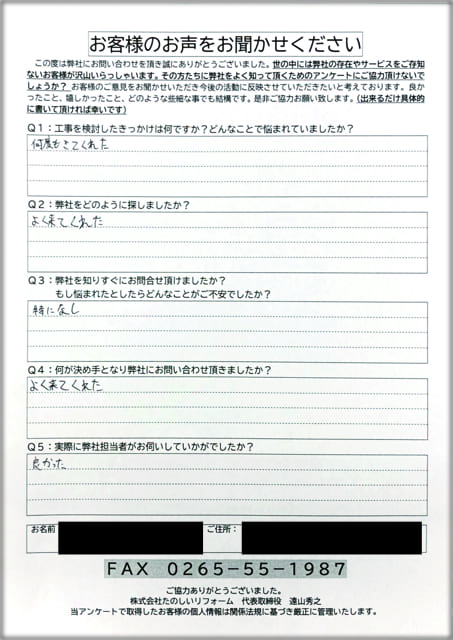 お客様のお声をお聞かせください
この度は弊社にお問い合わせを頂き誠にありがとうございました。世の中には弊社の存在やサービスをご存知
ないお客様が沢山いらっしゃいます。その方たちに弊社をよく知って頂くためのアンケートにご協力頂けないで
しょうか？ お客様のご意見をお聞かせいただき今後の活動に反映させていただきたいと考えております。良か
ったこと、嬉しかったこと、どのような些細な事でも結構です。是非ご協力お願い致します。（出来るだけ具体的
に書いて頂ければ幸いです）
Q1：工事を検討したきっかけは何ですか？どんなことで悩まれていましたか？
何度もきてくれた
Q2：弊社をどのように探しましたか？
よく来てくれた
Q3：弊社を知りすぐにお問合せ頂けましたか？
もし悩まれたとしたらどんなことがご不安でしたか？
特になし
Q4：何が決め手となり弊社にお問い合わせ頂きましたか？
よく来てくれた
Q5：実際に弊社担当者がお伺いしていかがでしたか？
良かった
お名前 ご住所：
FAX 0265-55-1987
ご協力ありがとうございました。
株式会社たのしいリフォーム 代表取締役 遠山秀之
当アンケートで取得したお客様の個人情報は関係法規に基づき厳正に管理いたします。